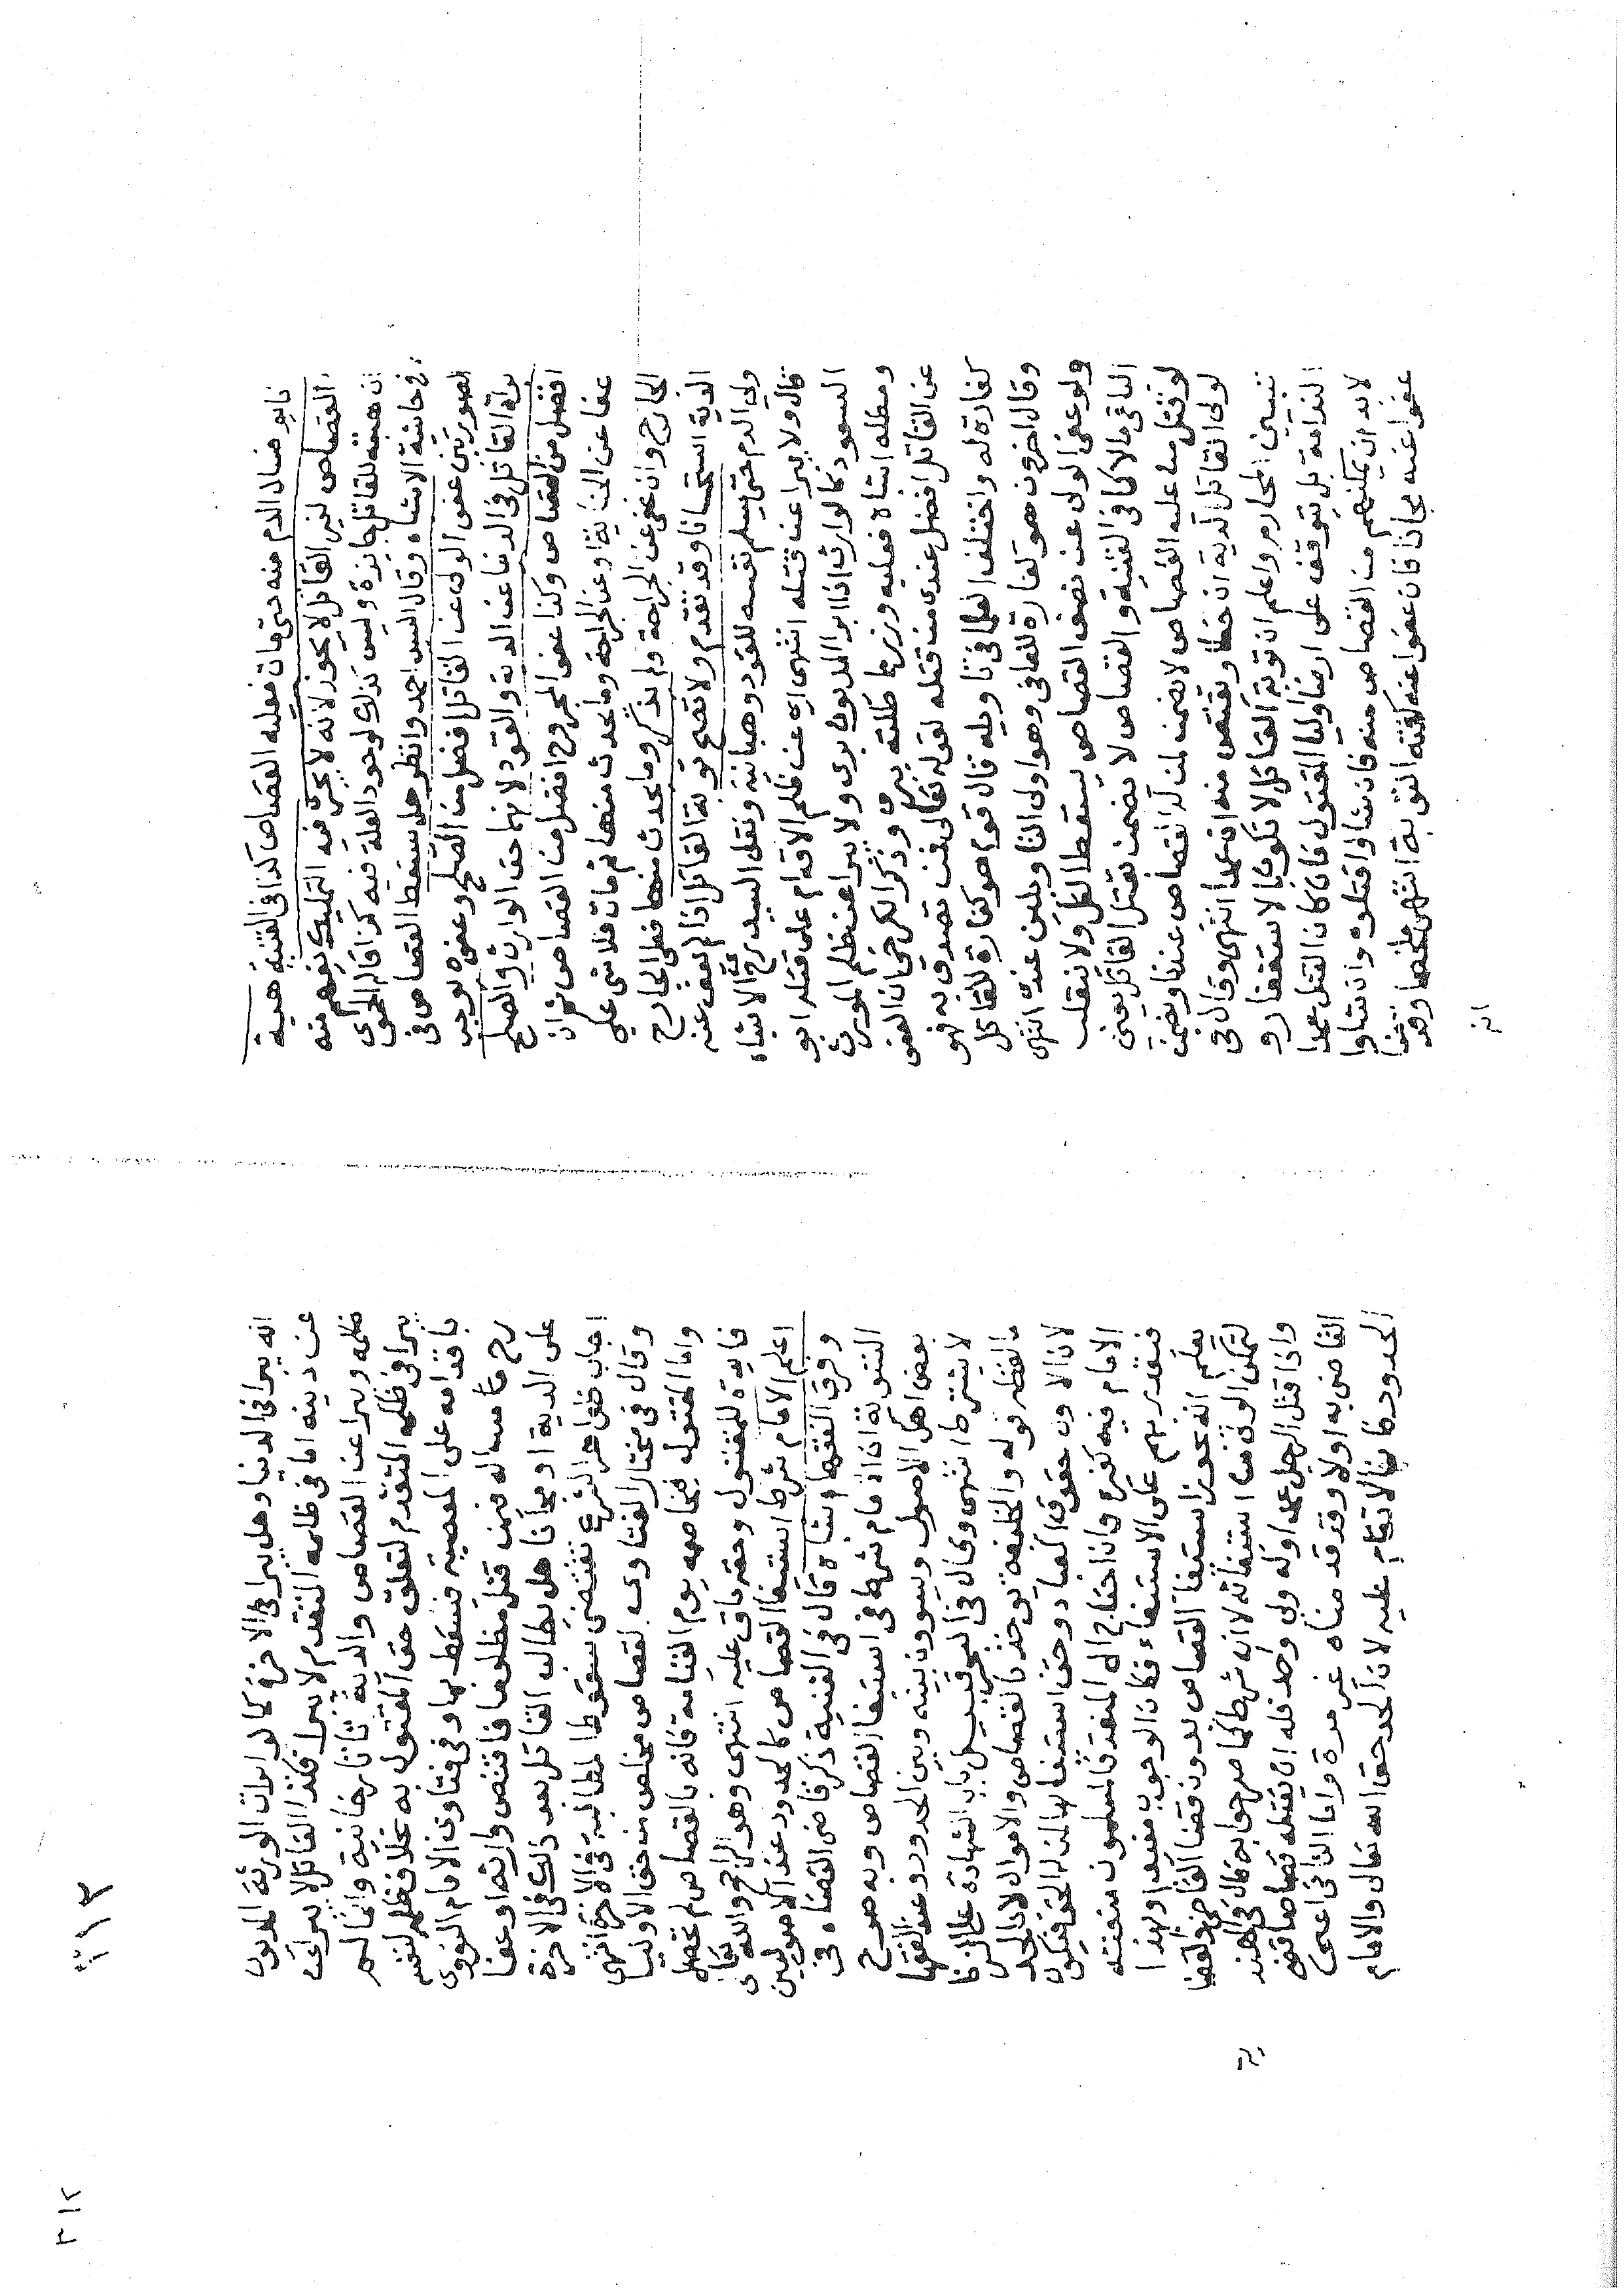 ضال الدم منه حتى مات فعليه القصاص كذا في القنية هبة
القصاص لغير القاتل لا يجوز لانه لا يجري فيه التمليك يفهم منه
ان هبته للقاتل جايزة وليس كذلك لوجود العلة فيه كذا قاله الحموي
في حاشية الاشباه وقال السيد احمد وانظر هل يسقط القصاص في
الصورتين عفو الولى عن القاتل افضل من الصلح وعفوه يوجب
براة القاتل في الدنيا عن الدية والقود لانهما حق الوارث والصلح
افضل من القصاص وكذا عفو المجروح افضل من القصاص ثم ان
عفا عن الجناية او عن الجراحة وما يحدث منها ثم مات فلا شي على
الجارح وان عفى عن الجراحة ولم يذكر وما يحدث منها فعلى الجارح
الدية استحسانا وقد تقدم ولا تصح توبة القاتل اذا لم يعف عنه
ولي الدم حتى يسلم نفسه للقود وهبانية ونقل السيد الاشباه
قال ولا يبرا عن قتله انتهى اي عن ظلم الاقدام على قتله ابو
السعود كالوارث اذا ابرا المديون بري ولا يبرا عن ظلم المورث
ومطله اشباه فعليه وزرهما يبري وذكر الكرخي ان العفو
عن القاتل افضل عندي من قتله لقوله تعالى فمن تصدق به فهو
كفارة له واختلف العلما في تاويله قال قوم هو كفارة للقاتل
وقال اخرون هو كفارة للعافي وهو اولى التاويلين عندي انتهى
ولو عفى الولى عن نصف القصاص يسقط الكل ولا ينقلب
الباقي مالا كما في القنية والقصاص لا يضمن بقتل القاتل يعنى
لو قتل من عليه القصاص لا يضمن لمن له القصاص عندنا ويضمن
لولى القاتل الدية ان خطا ويقتص منه ان عمدا انتهى وقال في
تبيين المحارم واعلم ان توبة القاتل لا تكون بالاستغفار و
الندامة بل يتوقف على ارضا اوليا المقتول فان كان القتل عمدا
لابد ان يمكنهم من القصاص منه فان شاوا قتلوه وان شاوا
عفوا عنه مجانا فان عفوا عنه كفته التوبة انتهى ملخصا وقدمنا
انه
٣١٢
انه يبرا في الدنيا وهل يبرا في الاخرة كما لو ابرات الورثة المديون
عن دينه اما في ظلمه المتقدم لا يبرا فكذا القاتل لا يبرا عن
ظلمه ويبرا عن القصاص والدية تاتارخانية وانما لم
يبرا في ظلمه المتقدم لتعلق حق المقتول به بخلاف ظلمه لنفسه
باقدامه على المعصية فسقط بها وفي فتاوى الامام النووي
رح مسالة فيمن قتل مظلوما فاقتص وارثه او عفا
على الدية او مجانا هل يطالب القاتل بعد ذلك في الاخرة
اجاب ظواهر الشرع تقتضى سقوط المطالبة في الاخرة انتهى
وقال في مختار الفتاوى القصاص مخلص من حق الاوليا
واما المقتول فيخاصمه يوم القيامة فانه بالقصاص لم تحصل
فايدة للمقتول وحقه باق عليه انتهى وهو الراجح والله تعالى
اعلم الامام شرط استيفا القصاص كالحدود عند الاصوليين
وفرق الفقهاء اشباه قال في القنية ذكر قاضي القضاء في
التسوية ان الامام شرط في استيفا القصاص وبه صرح
بعض اهل الاصول ويسوون بينه وبين الحدود وعند الفقها
لا يشترط انتهى وقال في البحر قبيل باب الشهادة على الزنا
ما لفظه قوله والخليفة يوخذ بالقصاص والاموال لا بالحد
لان الاول حقوق العباد وحق استيفائها لمن له الحق فيكون
الامام فيه كغيره وان احتاج الى المنعة فالمسلمون منعته
فيقدر بهم على الاستيفاء فكان الوجوب مفيدا وبهذا
يعلم انه يجوز استيفا القصاص بدون قضا القاضي والقضا
لتمكن الولى من استيفائه لا انه شرط كما صرحوا به قال في الهندية
واذا قتل الرجل عمدا وله ولي واحد فله ان يقتله قصاصا قضى
القاضي به اولا وقد قدمناه غير مرة واما الثاني اعني
الحدود فانها لا تقام عليه لان الحد حق الله تعالى والامام
٣١٢